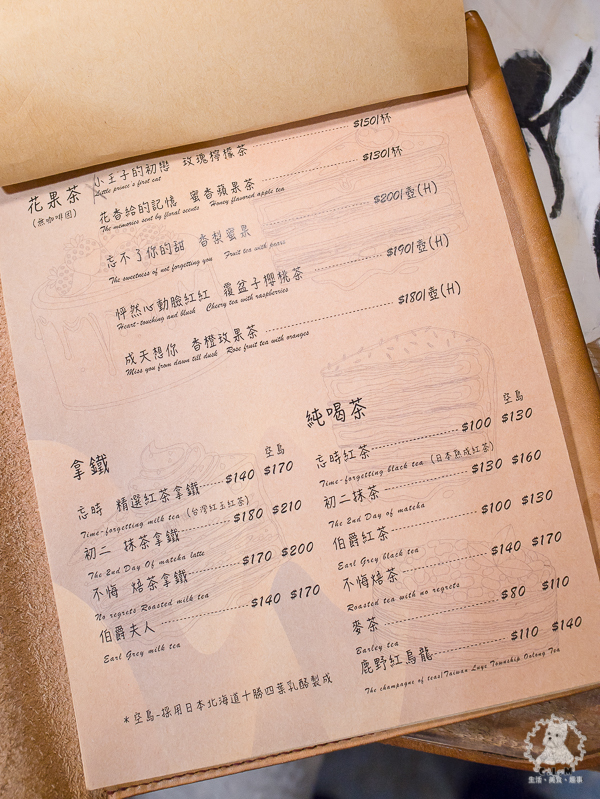 花果茶
(無咖啡因)
小王子的初戀 玫瑰檸檬茶 $150/杯
Little prince's first eat
花香給的記憶 蜜香蘋果茶 $130/杯
The memories sent by floral scents Honey flavored apple tea
忘不了你的甜 香梨蜜果 $200/壺(H)
The sweetness of not forgetting you Fruit tea with pears
怦然心動臉紅紅 覆盆子櫻桃茶 $190/壺(H)
Heart-touching and blush Cheery tea with raspberries
成天想你 香橙玫果茶 $180/壺(H)
Miss you from dawn till dusk Rose fruit tea with oranges
拿鐵
空島
忘時 精選紅茶拿鐵 $140 $170
Time-forgetting milk tea (台灣紅玉紅茶)
初二 抹茶拿鐵 $180 $210
The 2nd Day Of matcha latte
不悔 焙茶拿鐵 $170 $200
No regrets Roasted milk tea
伯爵夫人 $140 $170
Earl Grey milk tea
純喝茶
空島
忘時紅茶 $100 $130
Time-forgetting black tea (日本熟成紅茶)
初二抹茶 $130 $160
The 2nd Day of matcha
伯爵紅茶 $100 $130
Earl Grey black tea
不悔焙茶 $140 $170
Roasted tea with no regrets
麥茶 $80 $110
Barley tea
鹿野紅烏龍 $110 $140
The champagne of teas/Taiwan Luye Township Oolong Tea
*空島-採用日本北海道十勝四葉乳酪製成
生活•美食•趣事